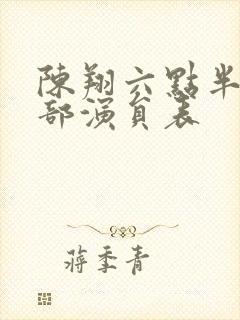 陳翔六點半
部演員表
蔣季青